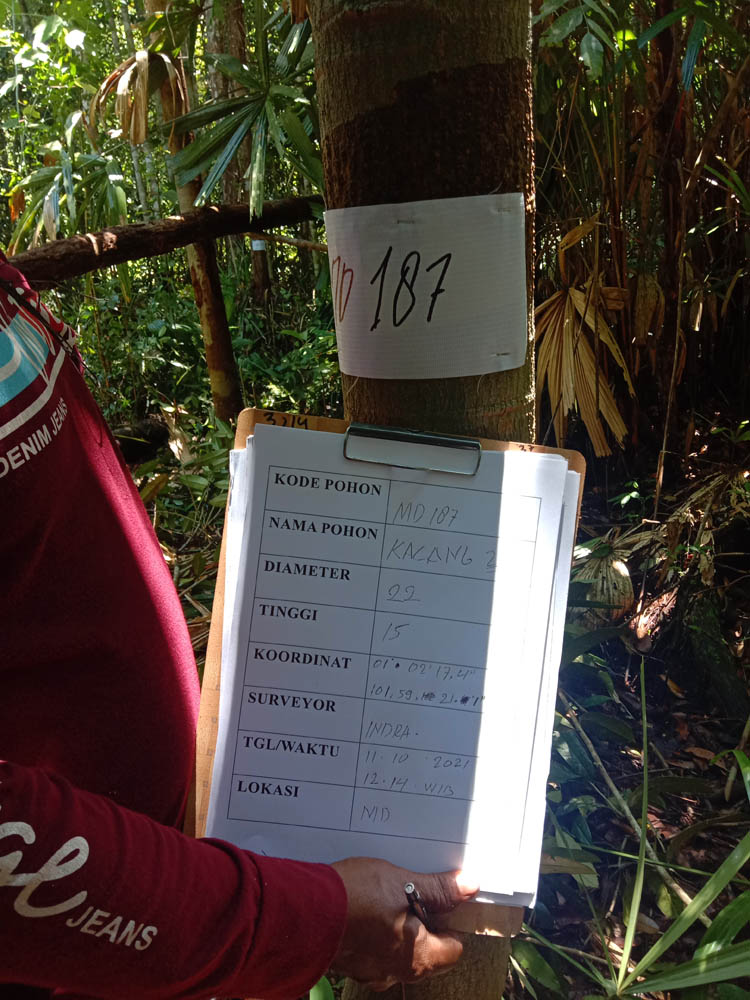 MD 187
DENIM JEANS
3314
KODE POHON MD 187
NAMA POHON KALANG 2
DIAMETER 22
TINGGI 15
KOORDINAT 01° 02' 17,4"
101, 59, 21. 1"
SURVEYOR INDRA.
TGL/WAKTU 11-10-2021
12.14. WIB
LOKASI MD
JEANS